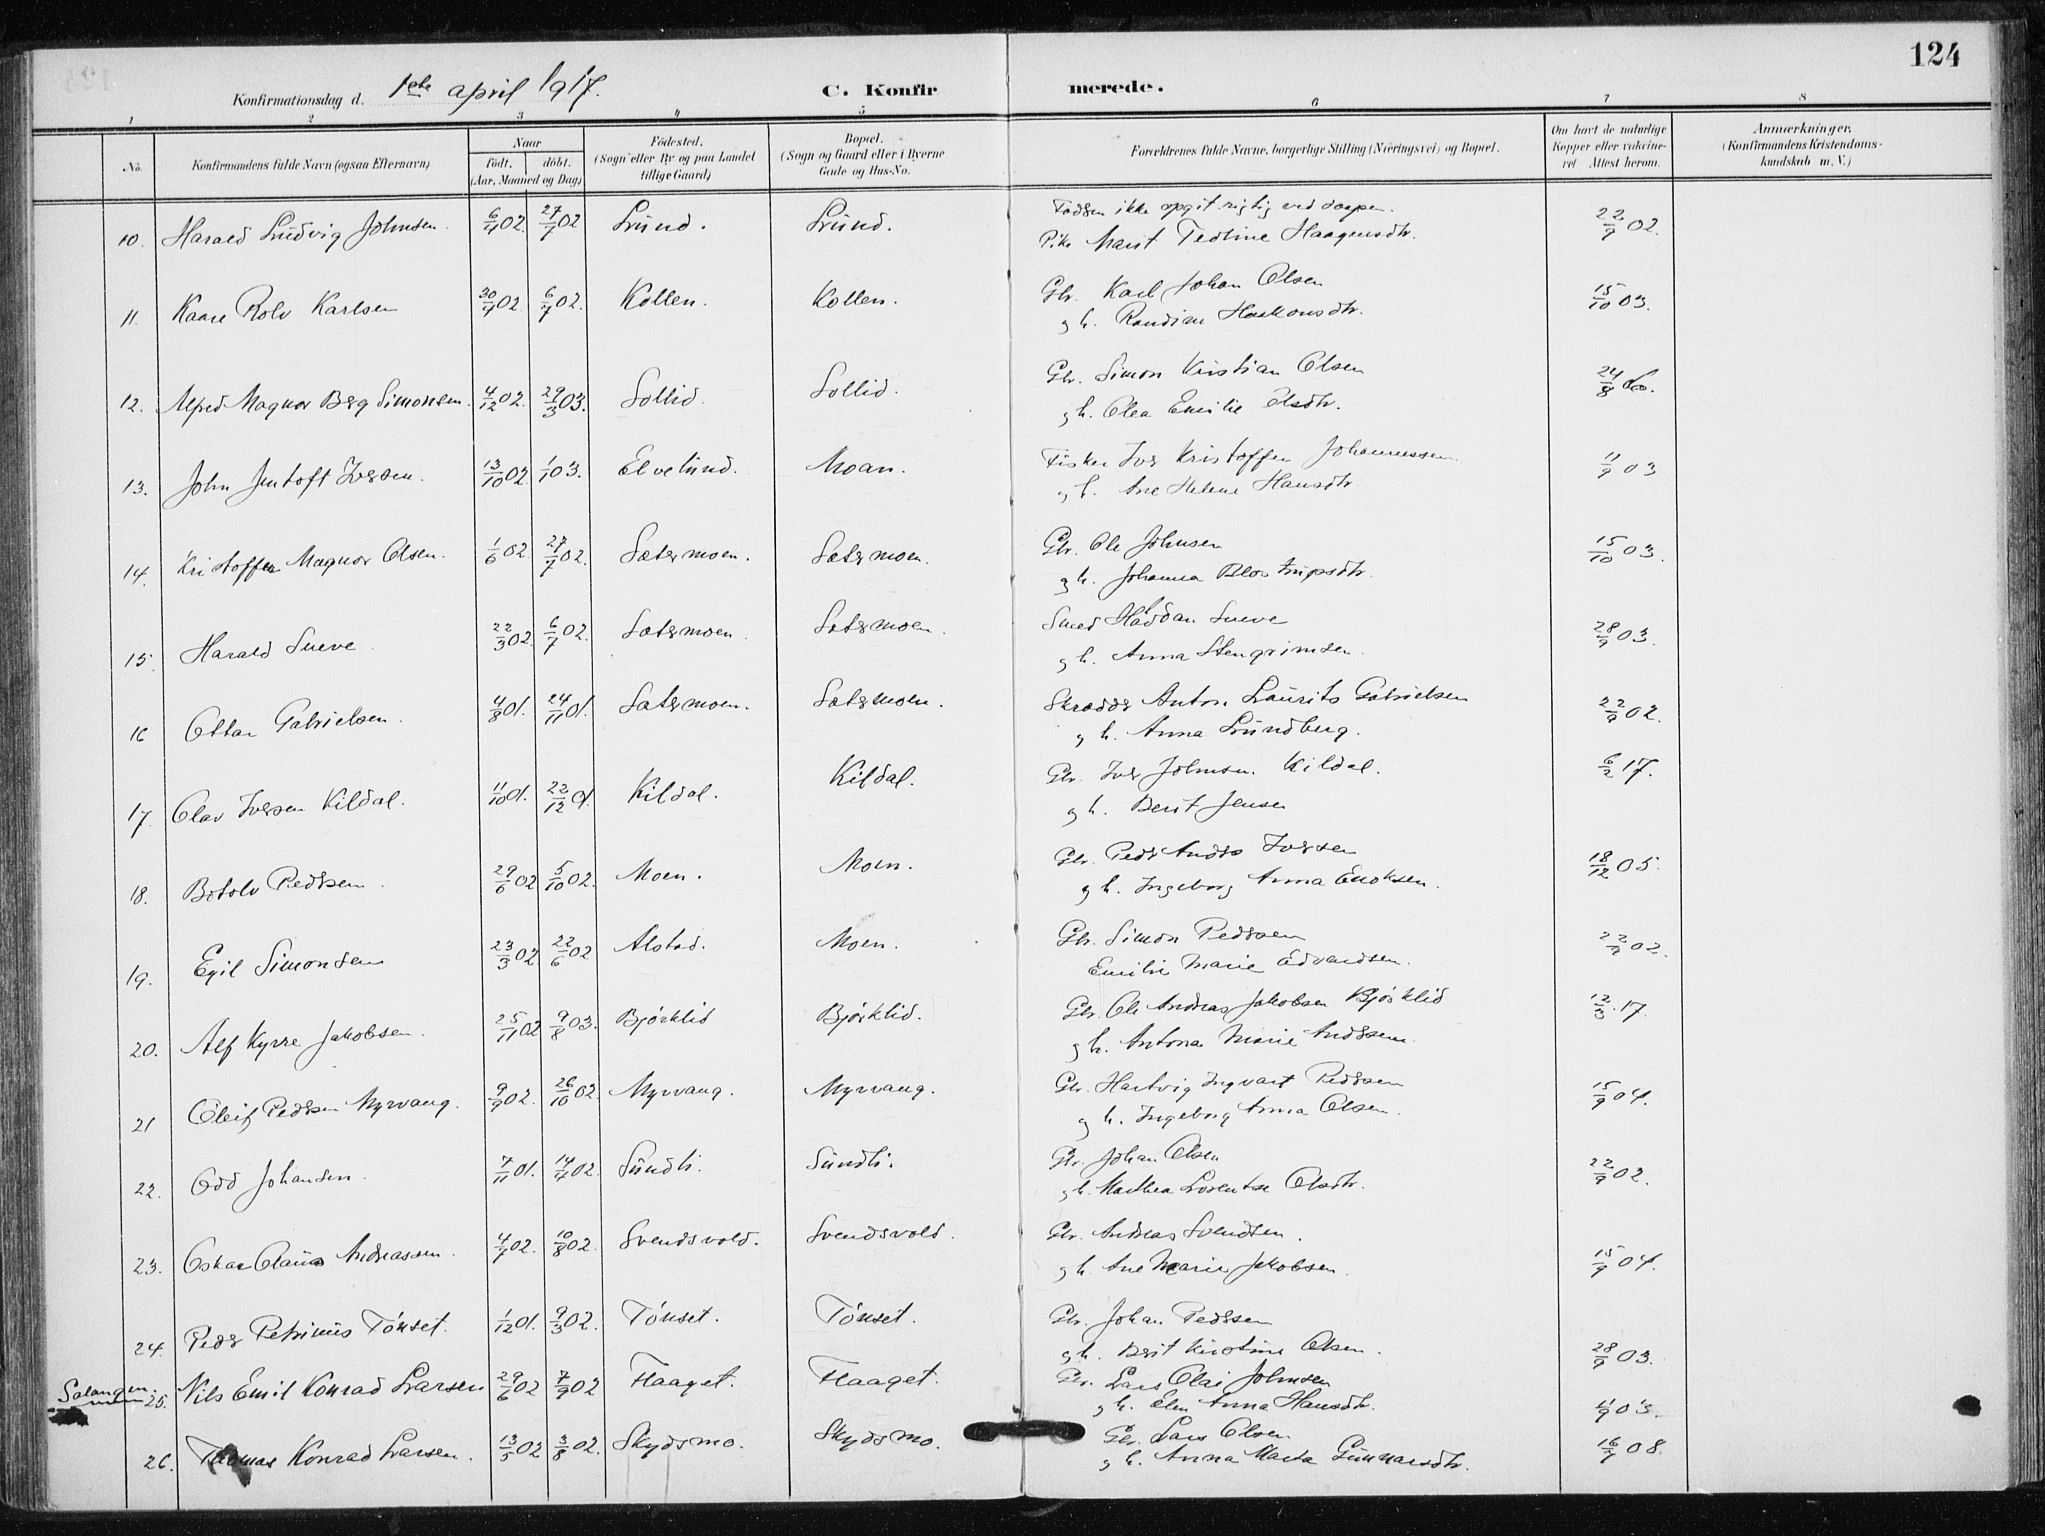 124
Konfirmationsdag d. 1ste april 1917. C. Konfirmerede.
1 2 3 4 5 6 7 8
No. Konfirmandens fulde Navn (ogsaa Efternavn) Naar født, døbt. (Aar, Maaned og Dag) Fødested. (Sogn eller By og paa Landet tillige Gaard) Bopæl. (Sogn og Gaard eller i Byerne Gade og Hus-No. Forældrenes fulde Navne, borgerlige Stilling (Næringsvei) og Bopæl. Om havt de naturlige Kopper eller vaccineret Attest herom. Anmærkninger. (Konfirmandens Kristendomskundskab m. V.)
10. Harald Ludvig Johnsen 6/4 02. 27/7 02 Lund. Lund. Fødsen ikke opgit rigtig ved daapen. 22/9 02.
Pike Marit Tedline Haagensdtr.
11. Kaare Rolv Karlsen 30/4 02. 6/7 02. Kollen. Kollen. Gbr. Karl Johan Olsen 15/10 03.
g h. Randine Haakonsdtr.
12. Alfred Magnor Berg Simonsen. 4/12 02. 29/3 03. Sollid. Sollid. Gbr. Simon Kristian Olsen 24/8
g h. Olea Emilie Olsdtr.
13. John Jentoft Iversen. 13/10 02 1/1 03. Elvelund. Moan. Fisker Iver Kristoffer Johannessen 11/9 03
g h. Ane Helene Hansdtr.
14. Kristoffer Magnor Olsen. 1/6 02. 27/7 02. Sætermoen. Sætermoen. Gbr. Ole Johnsen 15/10 03.
g h. Johanna Blostrupsdtr.
15. Harald Sneve 22/3 02 6/7 02. Sætermoen. Sætermoen. Smed Haldan Sneve 28/9 03.
g h. Anna Stengrimsen.
16 Ottar Gabrielsen. 4/8 01. 24/11 01. Sætermoen. Sætermoen. Skrædder Anton Laurits Gabrielsen 22/9 02.
g h. Anna Lundberg.
17. Olav Iversen Kildal. 11/10 01. 22/12 01. Kildal. Kildal. Gbr. Iver Johnsen Kildal. 6/2 17.
g h. Berit Jensen
18. Botolv Pedersen. 29/6 02 5/10 02. Moen. Moen. Gbr. Peder Andreas Iversen 18/12 05.
g h. Ingeborg Anna Enoksen.
19. Egil Simonsen 23/3 02 22/6 02 Alstad. Moen. Gbr. Simon Pedersen 22/9 02.
Emilie Marie Edvardsen.
20. Alf Kyrre Jakobsen. 25/11 02 9/8 03. Bjørklid Bjørklid. Gbr. Ole Andreas Jakobsen Bjørklid 12/3 17.
g h. Antona Marie Andersen.
21 Oleif Pedersen Myrvang. 9/9 02. 26/10 02. Myrvang. Myrvang. Gbr. Hartvig Ingvart Pedersen 15/9 04.
g h. Ingeborg Anna Olsen.
22. Odd Johansen. 7/11 01. 14/4 02. Sundli. Sundli. Gbr. Johan Olsen 22/9 02.
g h. Mathea Lorentse Olsdtr.
23. Oskar Claus Andreassen. 4/7 02. 10/8 02. Svendsvold. Svendsvold. Gbr. Andreas Svendsen. 15/9 04.
g h. Ane Marie Jakobsen.
24. Peder Petrinus Tønset. 1/12 01. 9/3 02. Tønset. Tønset. Gbr. Johan Pedersen 28/9 03.
g h. Berit Kirstine Olsen.
Salangen. 25. Nils Emil Konrad Larsen 29/6 02 7/9 02 Flaaget. Flaaget. Gbr. Lars Olai Johnsen 11/9 03.
g h. Elen Anna Hansdtr.
26. Thomas Konrad Larsen. 13/5 02 3/8 02. Skydsmo. Skydsmo. Gbr. Lars Olsen 16/7 08.
g h. Anna Marta Gunnarsdtr.